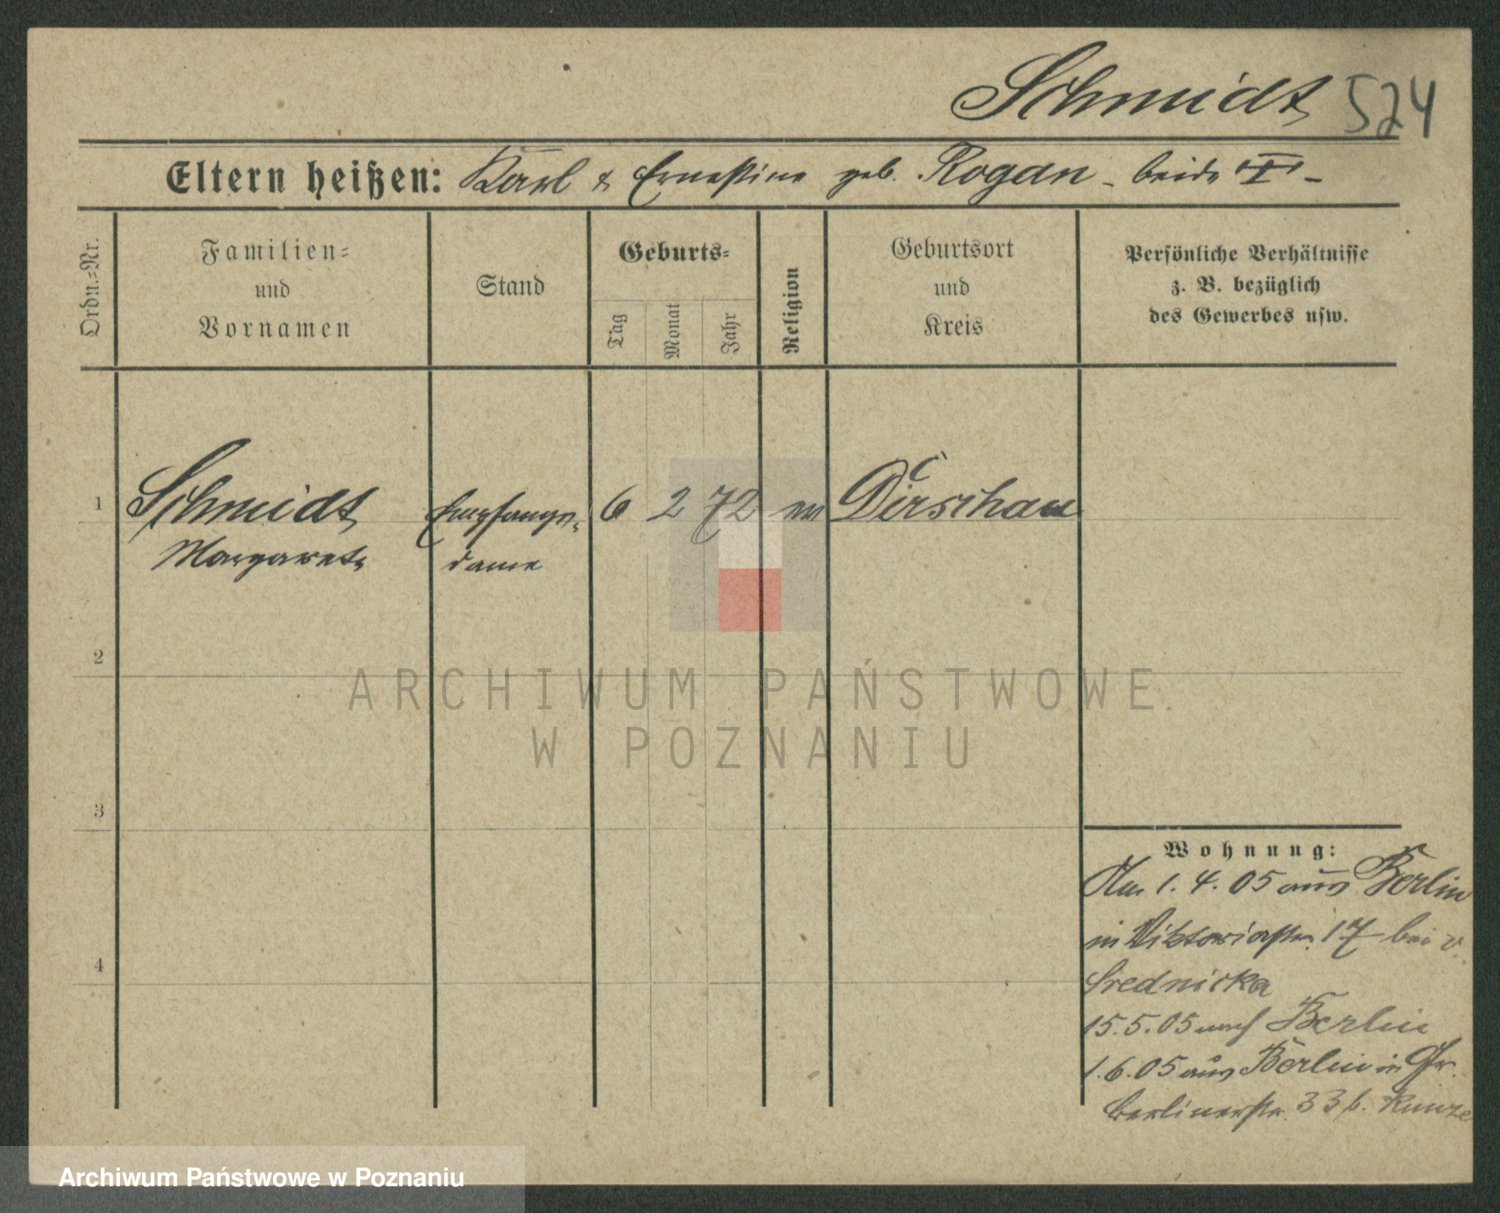 Schmidt 524
Eltern heißen: Karl & Ernestine geb. Rogan - beide † -
Ordn.=Nr.
Familien=
und
Vornamen
Stand
Geburts=
Tag
Monat
Jahr
Religion
Geburtsort
und
Kreis
Persönliche Verhältnisse
z. B. bezüglich
des Gewerbes usw.
1 Schmidt Empfangs- 6 2 72 Dirschau
Margarete dame
2
3
4
Wohnung:
Am 1.4.05 aus Berlin
in Viktoriastr. 17 bei v.
Srednicka
15.5.05 nach Berlin
1.6.05 aus Berlin in Gr.
Berlinerstr. 33 b. Kunze
ARCHIWUM PAŃSTWOWE
W POZNANIU
Archiwum Państwowe w Poznaniu